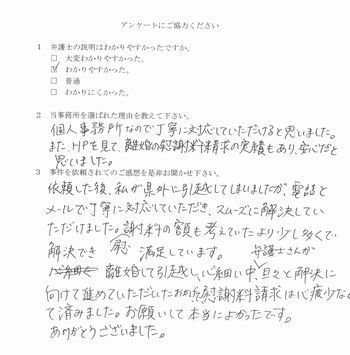 アンケートにご協力ください
1 弁護士の説明はわかりやすかったですか。
□ 大変わかりやすかった。
☑ わかりやすかった。
□ 普通
□ わかりにくかった。
2 当事務所を選ばれた理由を教えて下さい。
個人事務所なので丁寧に対応していただけると思いました。
また、HPを見て、離婚の慰謝料請求の実績もあり、安心だと
思いました。
3 事件を依頼されてのご感想を是非お聞かせ下さい。
依頼した後、私が県外に引越してしまいましたが電話と
メールで丁寧に対応していただき、スムーズに解決してい
ただけました。謝料の額も考えていたより少し多くて
慰
解決でき 満足しています。 弁護士さんが
心細 離婚して引越し、心細い中、旦々と解決に
向けて進めていただいたおかげで慰謝料請求は心疲少なく
て済みました。お願いして本当によかったです。
ありがとうございました。